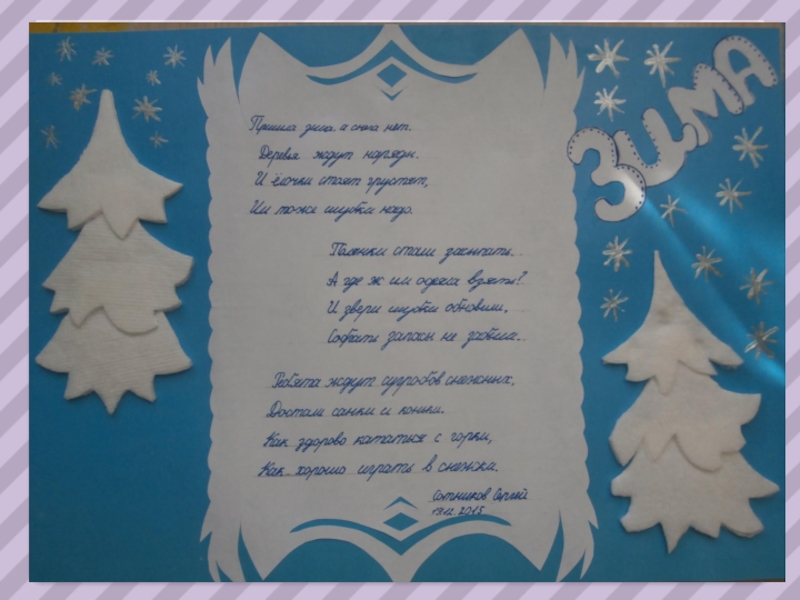 ЗИМА
Пришла зима. а снега нет.
Деревья ждут наряды.
И ёлочки стоят грустят,
Им тоже шубки надо.
Полянки стали засыпать.
А где ж им одеяла взять?
И звери шубки обновили,
Собрать запасы не забыли.
Ребята ждут сугробов снежных,
Достали санки и коньки.
Как здорово кататься с горки,
Как хорошо играть в снежки.
Сотников Сергей
19.12.2015